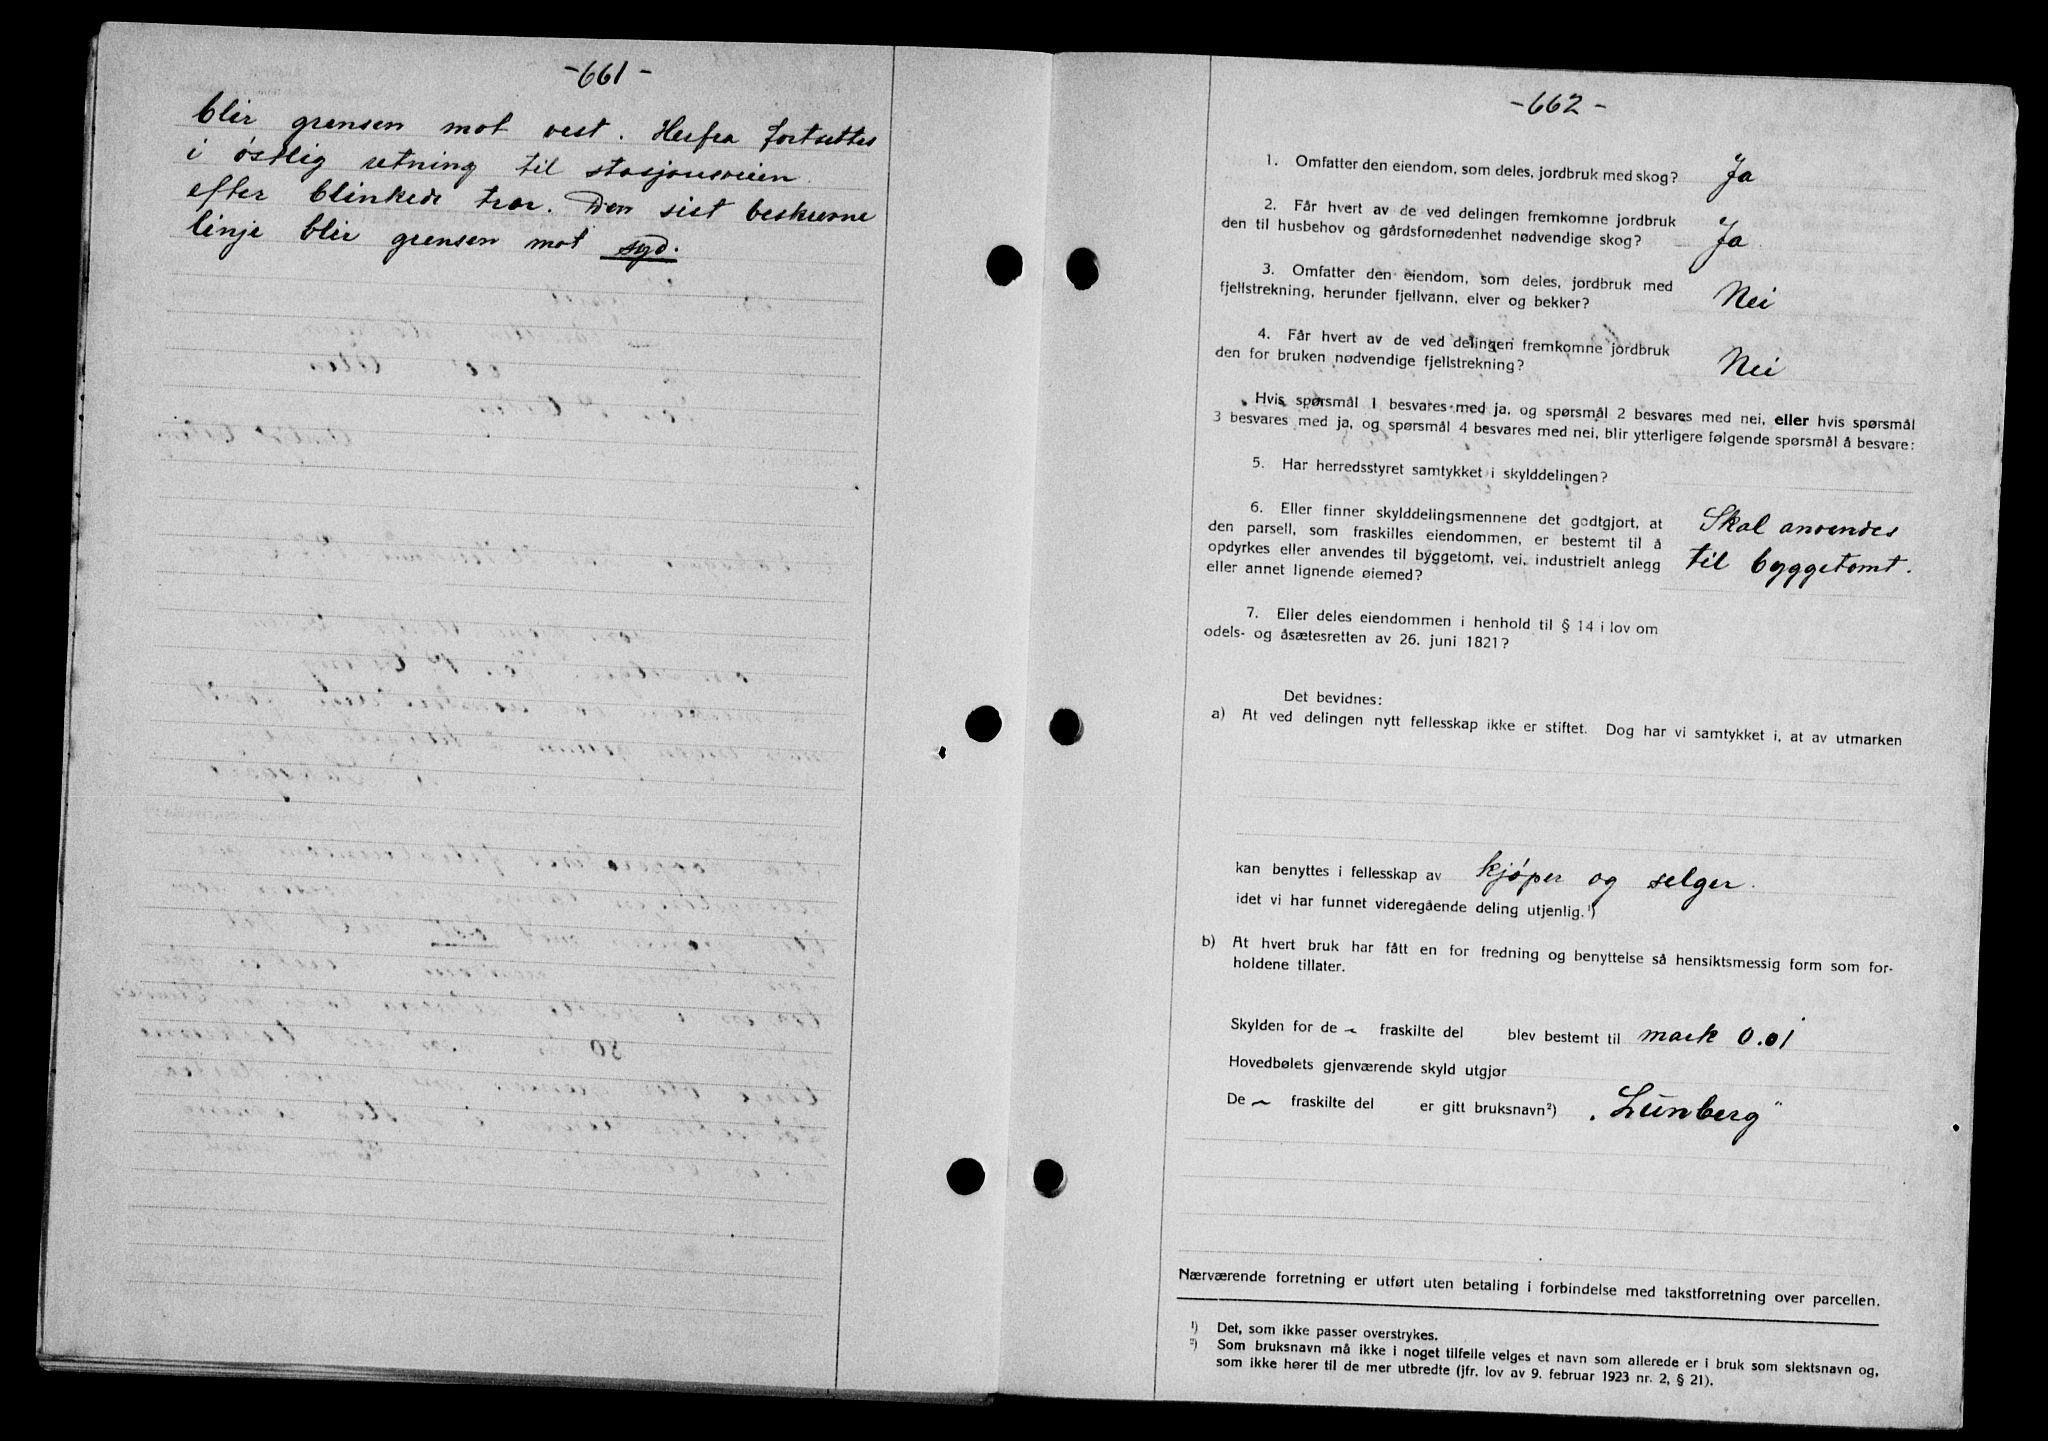 -661-
blir grensen mot vest. Herfra fortsettes
i østlig retning til stasjonsveien
efter blinkede trær. Den sist beskrevne
linje blir grensen mot syd.
-662-
1. Omfatter den eiendom, som deles, jordbruk med skog? Ja
2. Får hvert av de ved delingen fremkomne jordbruk
den til husbehov og gårdsfornødenhet nødvendige skog? Ja
3. Omfatter den eiendom, som deles, jordbruk med
fjellstrekning, herunder fjellvann, elver og bekker? Nei
4. Får hvert av de ved delingen fremkomne jordbruk
den for bruken nødvendige fjellstrekning? Nei
Hvis spørsmål 1 besvares med ja, og spørsmål 2 besvares med nei, eller hvis spørsmål
3 besvares med ja, og spørsmål 4 besvares med nei, blir ytterligere følgende spørsmål å besvare:
5. Har herredsstyret samtykket i skylddelingen?
6. Eller finner skylddelingsmennene det godtgjort, at
den parsell, som fraskilles eiendommen, er bestemt til å
opdyrkes eller anvendes til byggetomt, vei, industrielt anlegg
eller annet lignende øiemed?
Skal anvendes
til byggetomt.
7. Eller deles eiendommen i henhold til § 14 i lov om
odels- og åsætesretten av 26. juni 1821?
Det bevidnes:
a) At ved delingen nytt fellesskap ikke er stiftet. Dog har vi samtykket i, at av utmarken
kan benyttes i fellesskap av kjøper og selger.
idet vi har funnet videregående deling utjenlig.¹)
b) At hvert bruk har fått en for fredning og benyttelse så hensiktsmessig form som for-
holdene tillater.
Skylden for de ~ fraskilte del blev bestemt til mark 0.01
Hovedbølets gjenværende skyld utgjør
De ~ fraskilte del er gitt bruksnavn²) „Lunberg"
Nærværende forretning er utført uten betaling i forbindelse med takstforretning over parcellen.
¹) Det, som ikke passer overstrykes.
²) Som bruksnavn må ikke i noget tilfelle velges et navn som allerede er i bruk som slektsnavn og,
som ikke hører til de mer utbredte (jfr. lov av 9. februar 1923 nr. 2, § 21).